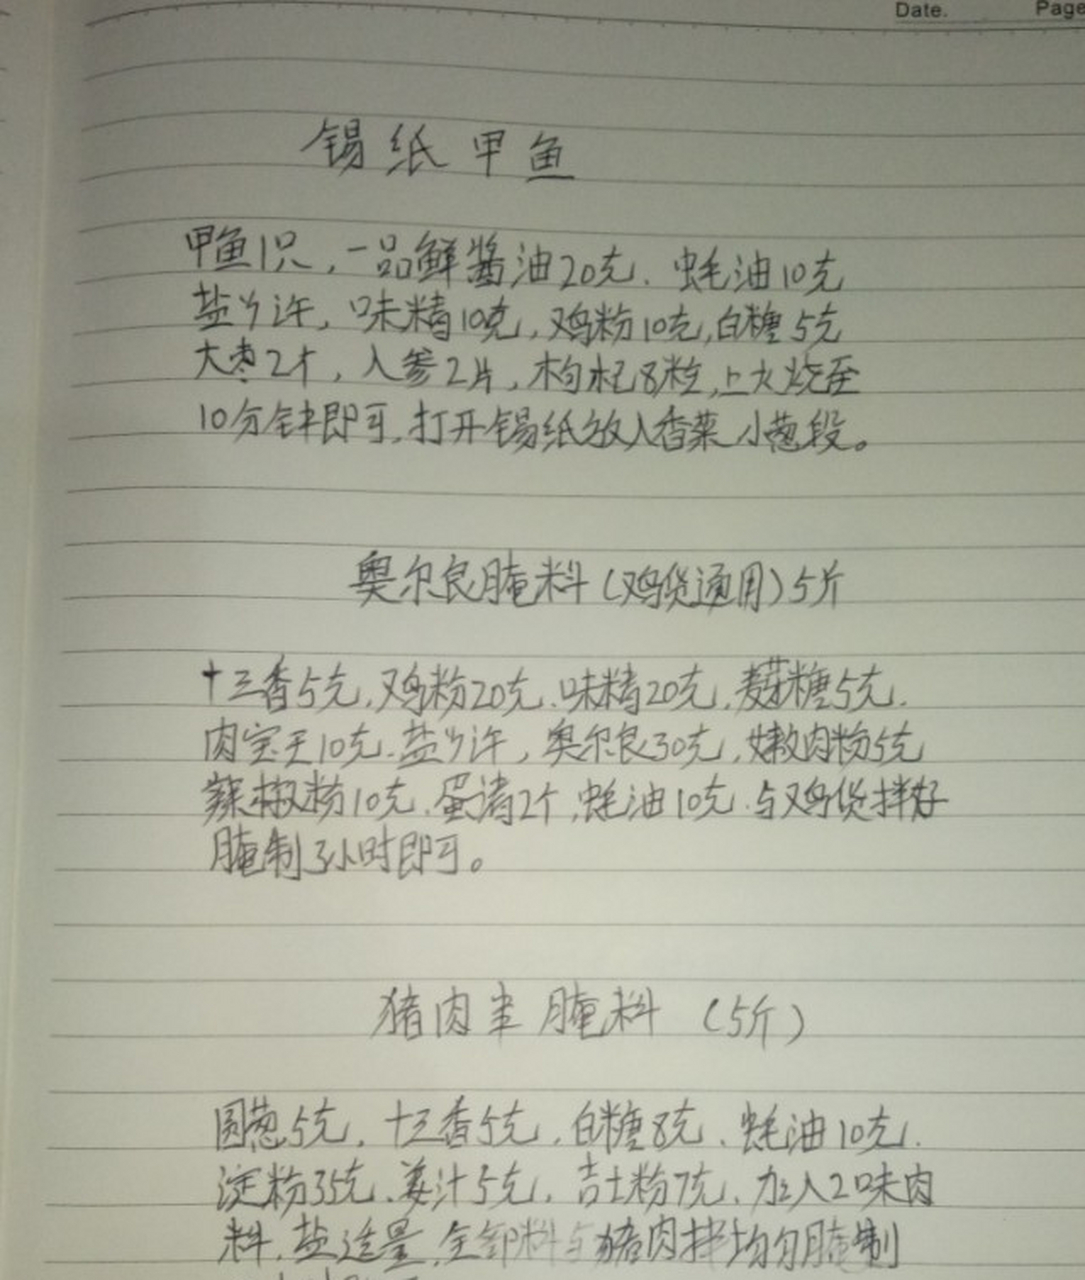 Date. Page
锡纸甲鱼
甲鱼1只,一品鲜酱油20克、蚝油10克
盐少许,味精10克,鸡粉10克,白糖5克
大枣2个,人参2片,枸杞8粒,上火烧至
10分钟即可,打开锡纸放入香菜小葱段。
奥尔良腌料(鸡货通用)5斤
十三香5克,鸡粉20克、味精20克,麦芽糖5克.
肉宝王10克.盐少许,奥尔良30克,嫩肉粉5克
辣椒粉10克.蛋清2个,蚝油10克.与鸡货拌好
腌制3小时即可。
猪肉串腌料(5斤)
圆葱5克,十三香5克,白糖8克、蚝油10克.
淀粉35克.姜汁5克,吉士粉7克,加入20味肉
料.盐适量,全部料与猪肉拌均匀腌制